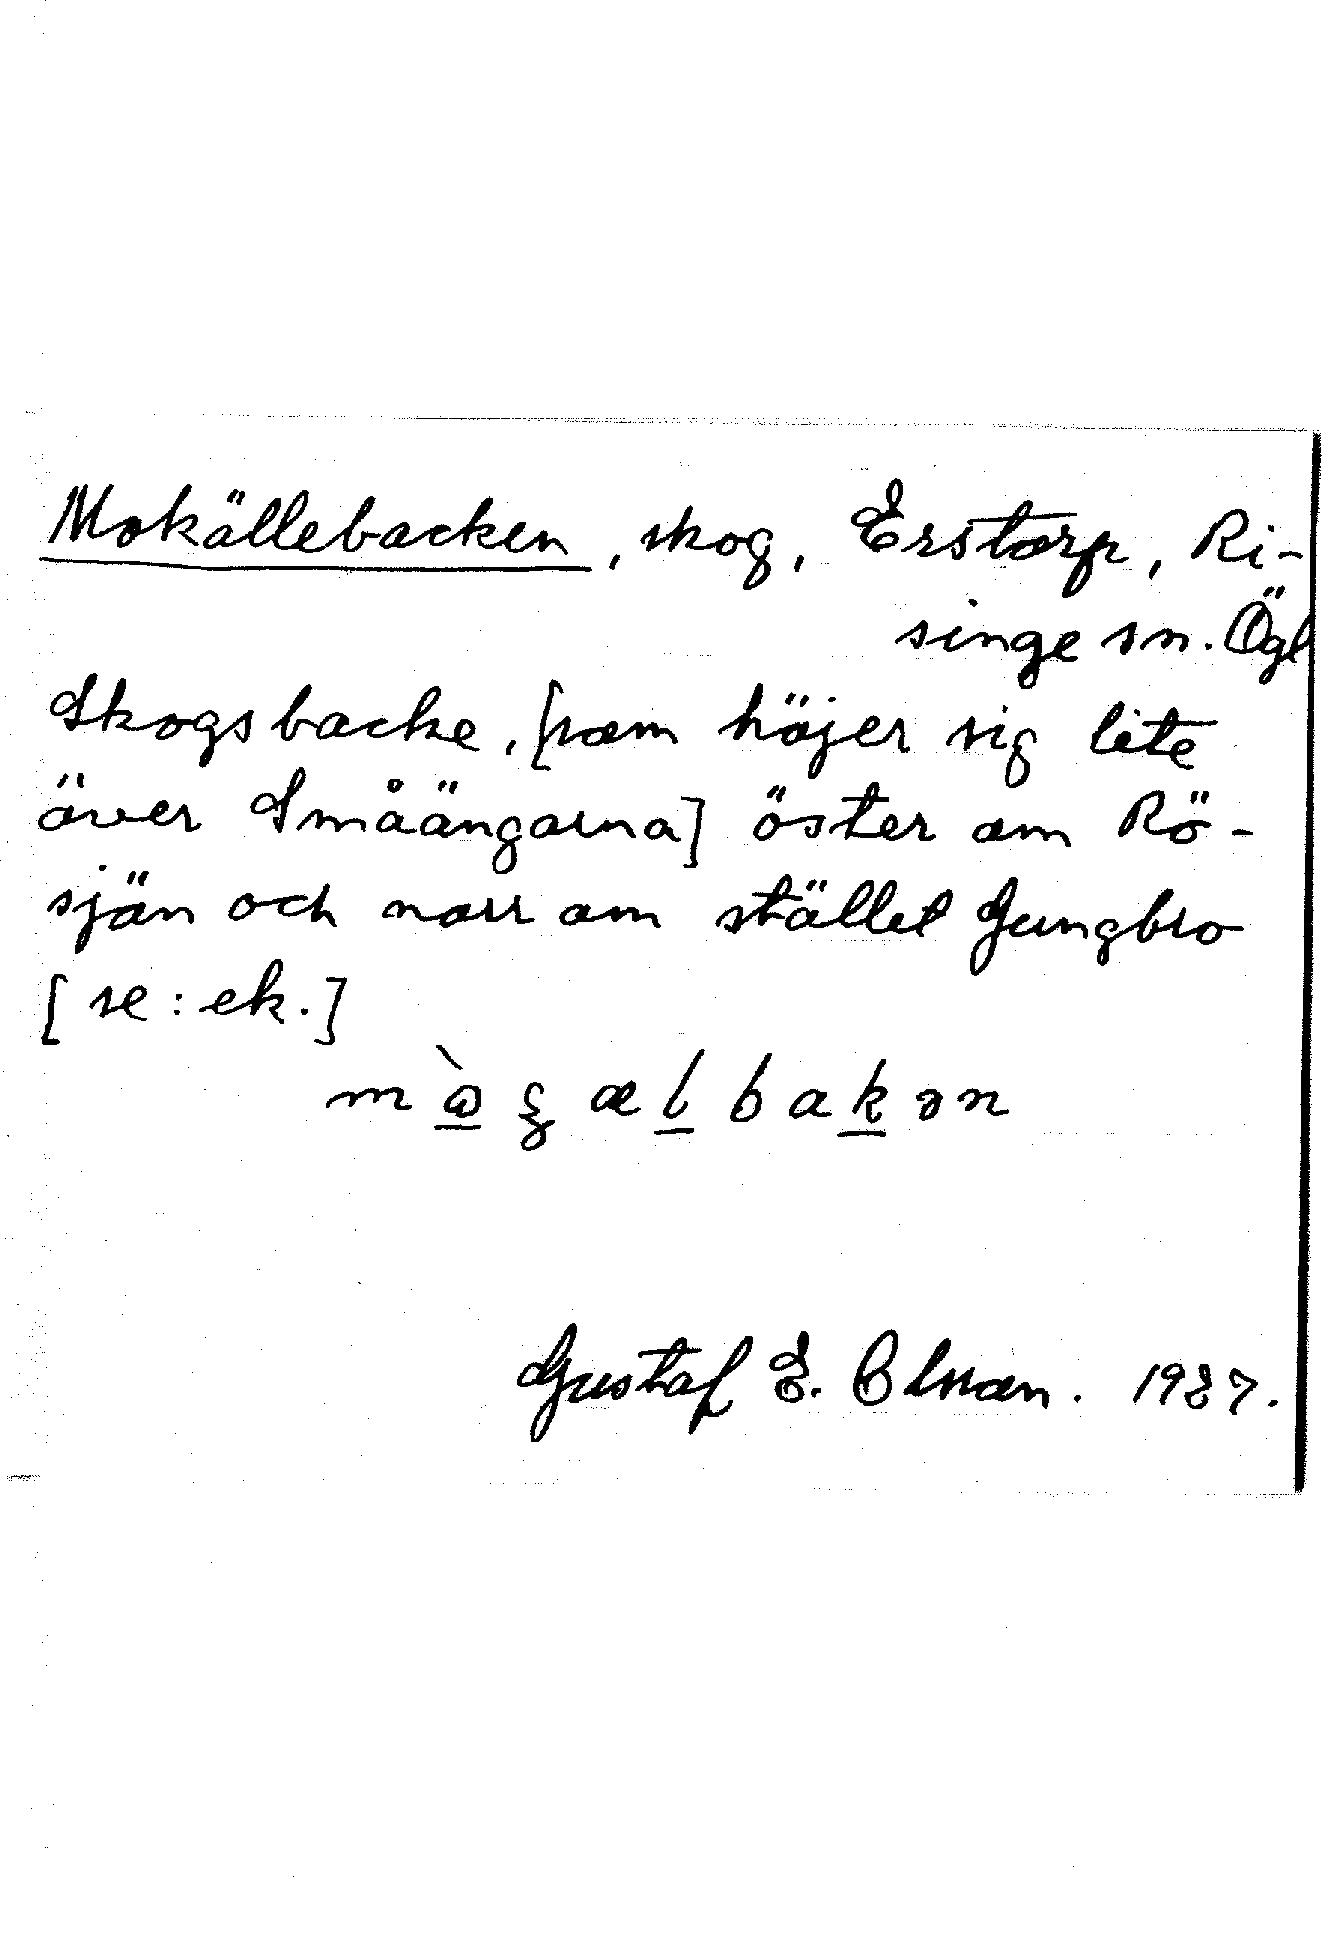 Mokällebacken, skog, Erstorp, Ri-
singe sn. Ögl
Skogsbacke, [som höjer sig lite
över Småängarna] öster om Rö-
sjön och norr om stället Ljungbro
[se: ek.]
Gustaf E. Olsson. 1937.